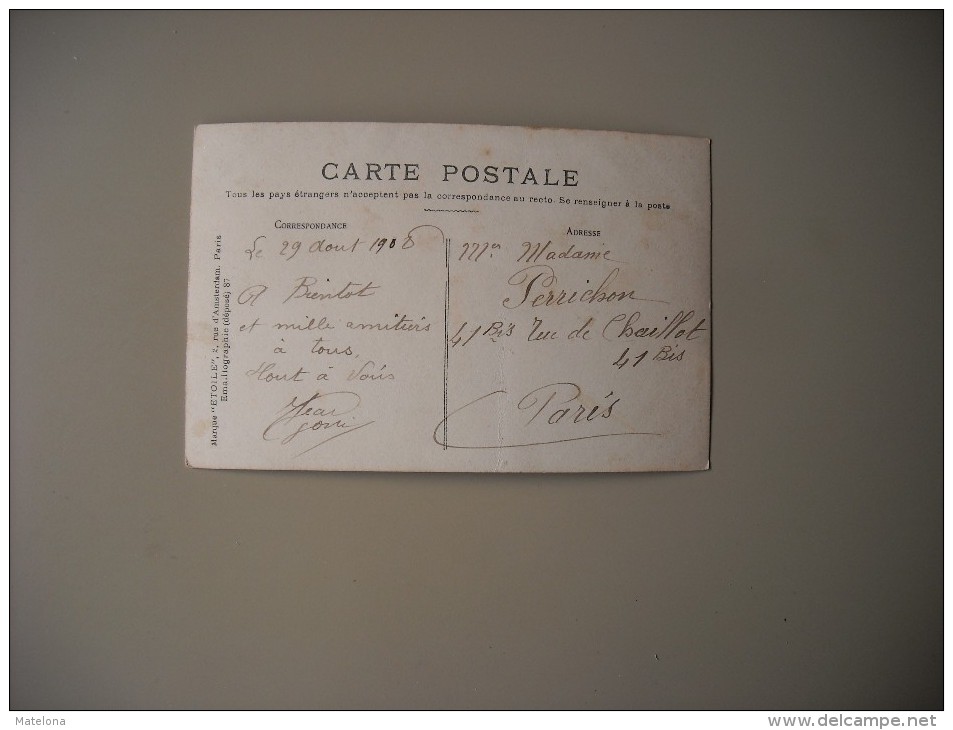 CARTE POSTALE
Tous les pays étrangers n'acceptent pas la correspondance au recto. Se renseigner à la poste
CORRESPONDANCE
Le 29 Aout 1908
A Bientot
et mille amitiés
à tous,
Tout à Vous
Jean
ADRESSE
Mr Madame
Perrichon
41 Bis Rue de Chaillot
41 Bis
Paris
Marque "ETOILE", 2, rue d'Amsterdam. Paris
Emailographie (déposé) 87
Matelona
www.delcampe.net